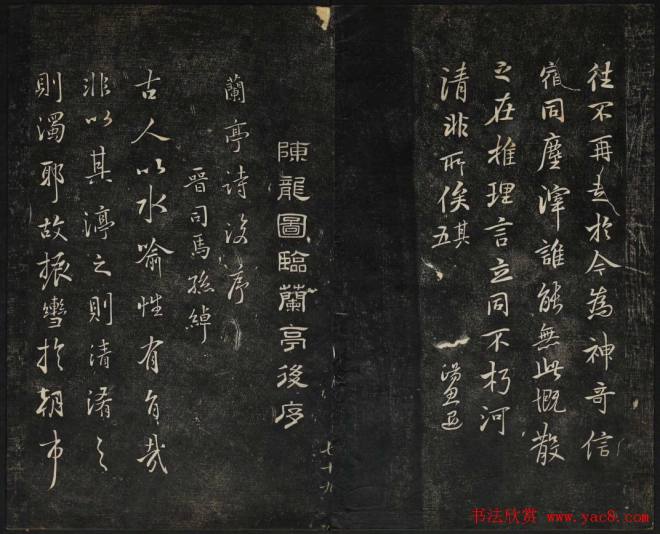 往不再起於今為神奇信
宿同塵滓誰能無此慨散
之在推理言立同不朽河
清非所俟其五
七十九
陳龍圖臨蘭亭後序
蘭亭詩後序
晉司馬孫綽
古人以水喻性有旨哉
非以其渟之則清淆之
則濁耶故振轡於朝市
书法欣赏 www.yac8.com